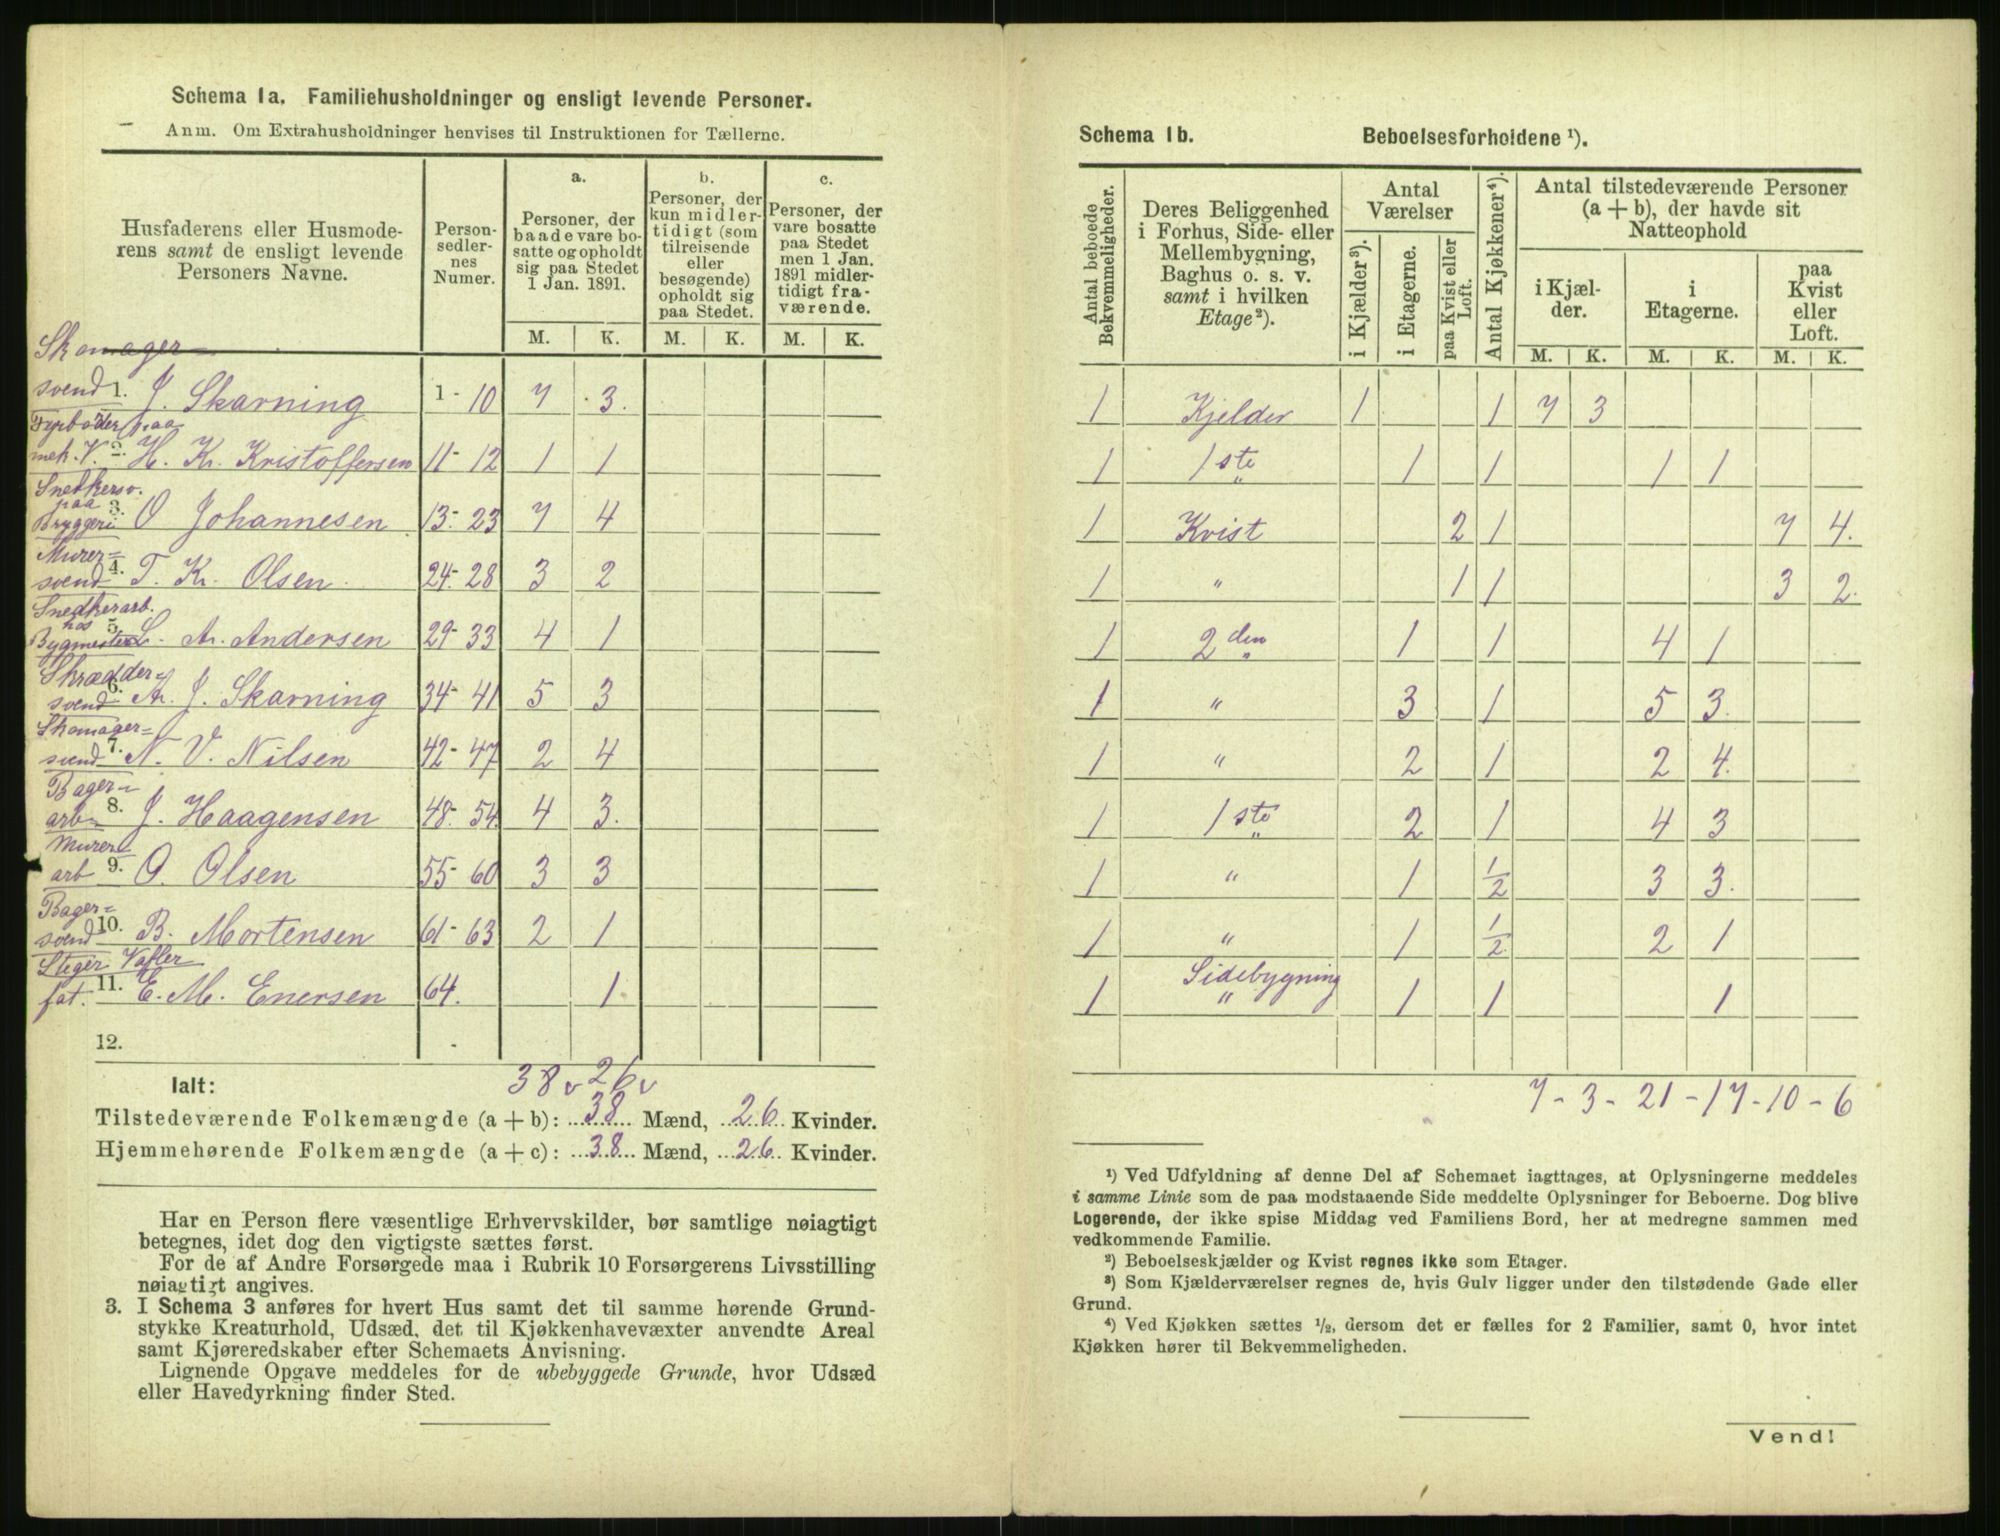 Schema 1a. Familiehusholdninger og ensligt levende Personer.
Anm. Om Extrahusholdninger henvises til Instruktionen for Tællerne.
Husfaderens eller Husmoderens samt de ensligt levende Personers Navne.
Personsedlernes Numer.
a. Personer, der baade vare bosatte og opholdt sig paa Stedet 1 Jan. 1891.
b. Personer, der kun midlertidigt (som tilreisende eller besøgende) opholdt sig paa Stedet.
c. Personer, der vare bosatte paa Stedet men 1 Jan. 1891 midlertidigt fraværende.
M. K. M. K. M. K.
Skomager=
svend 1. J. Skarning 1-10 7 3.
Fyrbøder paa
mek. V. 2. H. Kr. Kristoffersen 11-12 1 1
Snedkersv.
paa
Bryggeri 3. O Johannesen 13-23 7 4
Murer=
svend 4. T. Kr. Olsen 24-28 3 2
Snedkerarb.
hos
Bygmester 5. L. Ar. Andersen 29-33 4 1
Skrædder=
svend 6. Ar. J. Skarning 34-41 5 3
Skomager=
svend 7. N. V. Nilsen 42-47 2 4
Bager=
arb 8. J. Haagensen 48-54 4 3.
Murer
arb 9. O. Olsen 55-60 3 3
Bager=
svend 10. B. Mortensen 61-63 2 1
Steger Vafler
fat. 11. E. M. Enersen 64. 1
12. -
Ialt: 38 v 26 v
Tilstedeværende Folkemængde (a + b): 38 Mænd, 26 Kvinder.
Hjemmehørende Folkemængde (a + c): 38 Mænd, 26 Kvinder.
Har en Person flere væsentlige Erhvervskilder, bør samtlige nøiagtigt
betegnes, idet dog den vigtigste sættes først.
For de af Andre Forsørgede maa i Rubrik 10 Forsørgerens Livsstilling
nøiagtigt angives.
3. I Schema 3 anføres for hvert Hus samt det til samme hørende Grund-
stykke Kreaturhold, Udsæd, det til Kjøkkenhavevæxter anvendte Areal
samt Kjøreredskaber efter Schemaets Anvisning.
Lignende Opgave meddeles for de ubebyggede Grunde, hvor Udsæd
eller Havedyrkning finder Sted.
Schema 1b. Beboelsesforholdene ¹).
Antal beboede Bekvemmeligheder.
Deres Beliggenhed i Forhus, Side- eller Mellembygning, Baghus o. s. v. samt i hvilken Etage²).
Antal Værelser
i Kjælder³).
i Etagerne.
paa Kvist eller Loft.
Antal Kjøkkener⁴).
Antal tilstedeværende Personer (a + b), der havde sit Natteophold
i Kjælder. i Etagerne. paa Kvist eller Loft.
M. K. M. K. M. K.
1 Kjelder 1 1 7 3
1 1 ste " 1 1 1 1
1 Kvist 2 1 7 4.
1 " 1 1 3 2.
1 2 den " 1 1 4 1
1 " 3 1 5 3.
1 " 2 1 2 4.
1 1 ste " 2 1 4 3
1 " 1 1/2 3 3.
1 " 1 1/2 2 1
Sidebygning
1 " 1 1 1
7 - 3 - 21 - 17 - 10 - 6
¹) Ved Udfyldning af denne Del af Schemaet iagttages, at Oplysningerne meddeles
i samme Linie som de paa modstaaende Side meddelte Oplysninger for Beboerne. Dog blive
Logerende, der ikke spise Middag ved Familiens Bord, her at medregne sammen med
vedkommende Familie.
²) Beboelseskjælder og Kvist regnes ikke som Etager.
³) Som Kjælderværelser regnes de, hvis Gulv ligger under den tilstødende Gade eller
Grund.
⁴) Ved Kjøkken sættes ½, dersom det er fælles for 2 Familier, samt 0, hvor intet
Kjøkken hører til Bekvemmeligheden.
Vend!